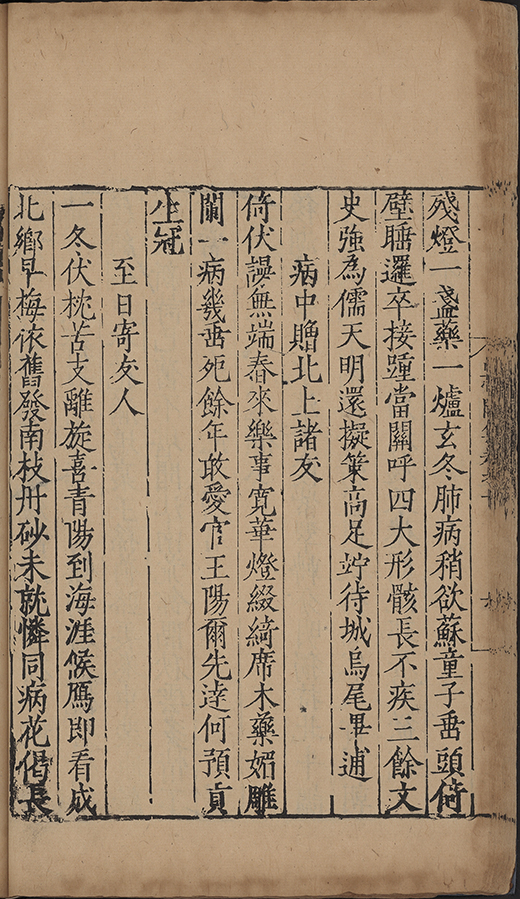 殘燈一盞藥一爐玄冬肺病稍欲蘇童子垂頭倚
壁睡邏卒接踵當關呼四大形骸長不疾三餘文
史強為儒天明還擬策高足竚待城烏尾畢逋
病中贈北上諸友
倚伏無端春來樂事寬華燈綴綺席木藥媚雕
闌一病幾垂死餘年敢愛官王陽爾先達何預貢
生冠
至日寄友人
一冬伏枕苦支離旋喜青陽到海涯候鴈即看成
北鄉早梅依舊發南枝丹砂未就憐同病花偈長